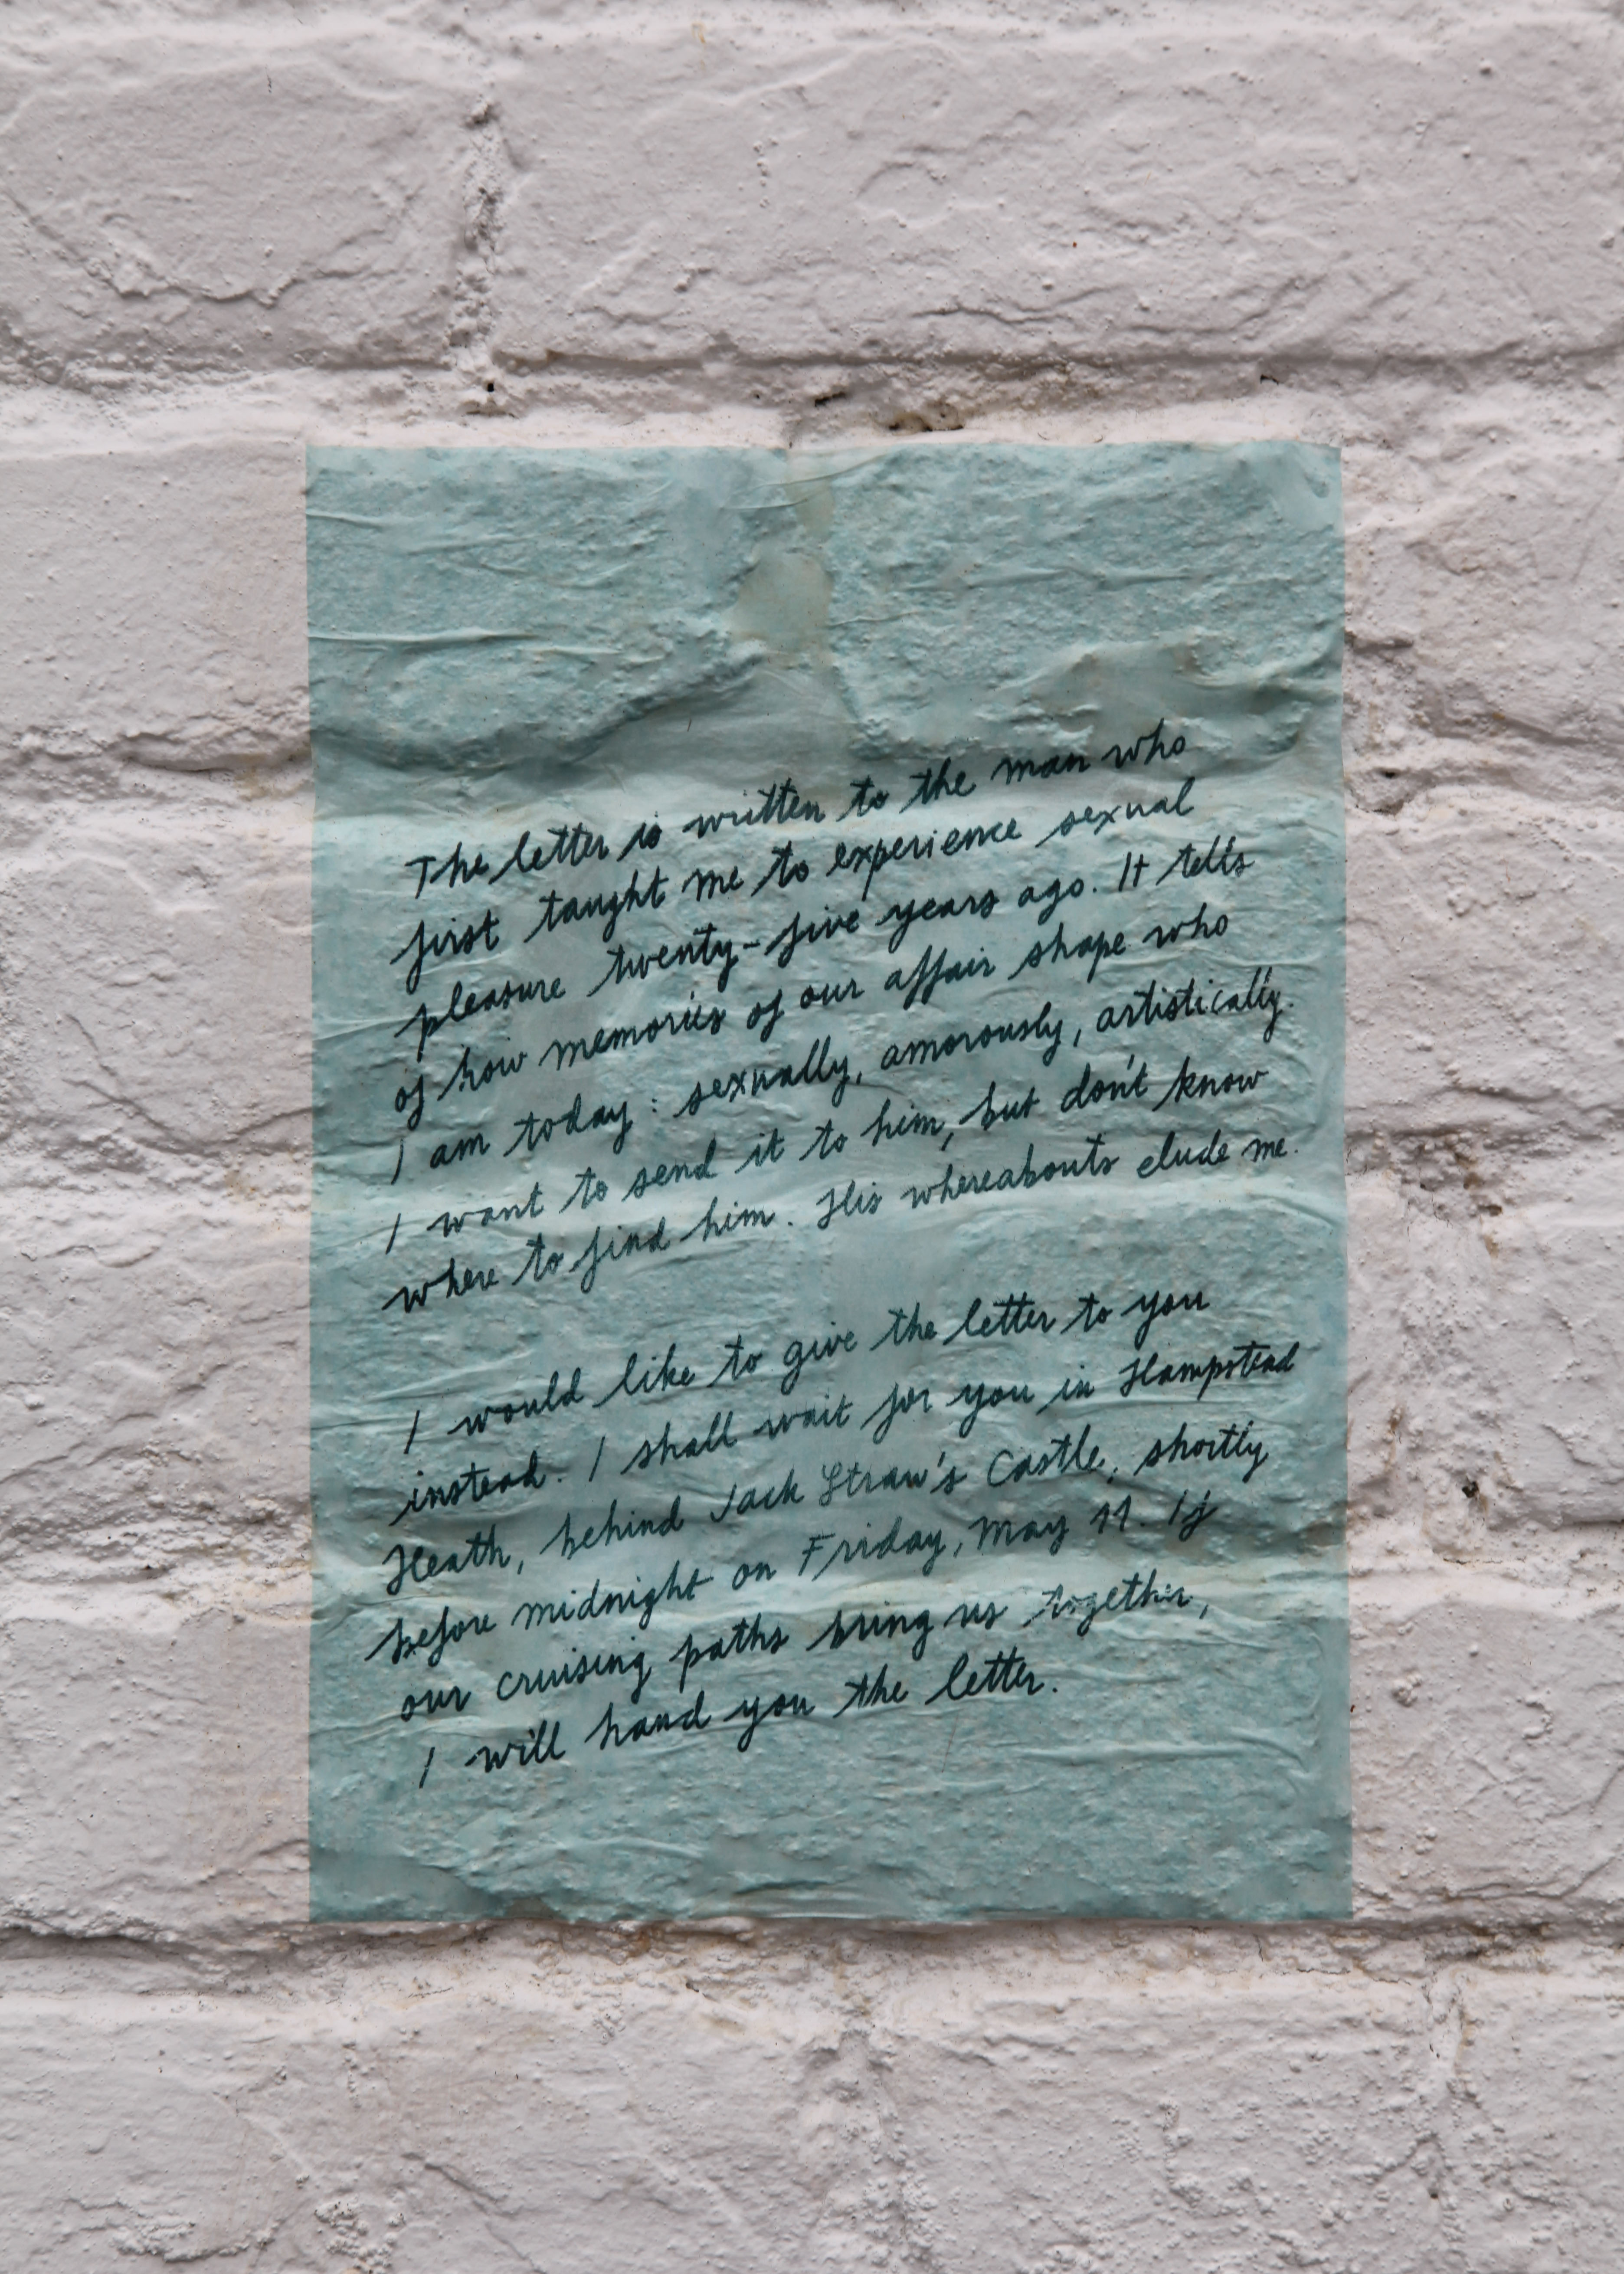 The letter is written to the man who
first taught me to experience sexual
pleasure twenty-five years ago. It tells
of how memories of our affair shape who
I am today: sexually, amorously, artistically.
I want to send it to him, but don't know
where to find him. His whereabouts elude me.
I would like to give the letter to you
instead. I shall wait for you in Hampstead
Heath, behind Jack Straw's Castle, shortly
before midnight on Friday, May 11. If
our cruising paths bring us together,
I will hand you the letter.